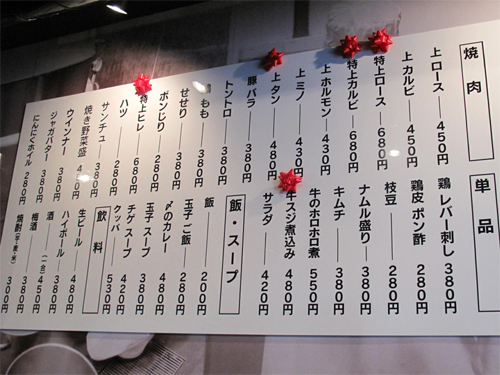 焼肉
上ロース 450円
上カルビ 450円
特上ロース 680円
特上カルビ 680円
上ホルモン 430円
上ミノ 430円
上タン 480円
豚バラ 380円
トントロ 380円
もも 380円
せせり 380円
ボンじり 280円
特上ヒレ 680円
ハツ 280円
サンチュ
焼き野菜盛
ウインナー 380円
ジャガバター 380円
にんにくホイル 280円
単品
鶏レバー刺し 380円
鶏皮ポン酢 280円
枝豆 280円
ナムル盛り 380円
キムチ 380円
牛のホロホロ煮 550円
牛スジ煮込み 480円
サラダ 420円
飯・スープ
飯 200円
玉子ご飯 280円
〆のカレー 480円
玉子スープ 380円
チゲスープ 420円
クッパ 530円
飲料
生ビール 480円
ハイボール 380円
酒 (一合) 450円
梅酒 380円
焼酎(芋・麦・米) 300円